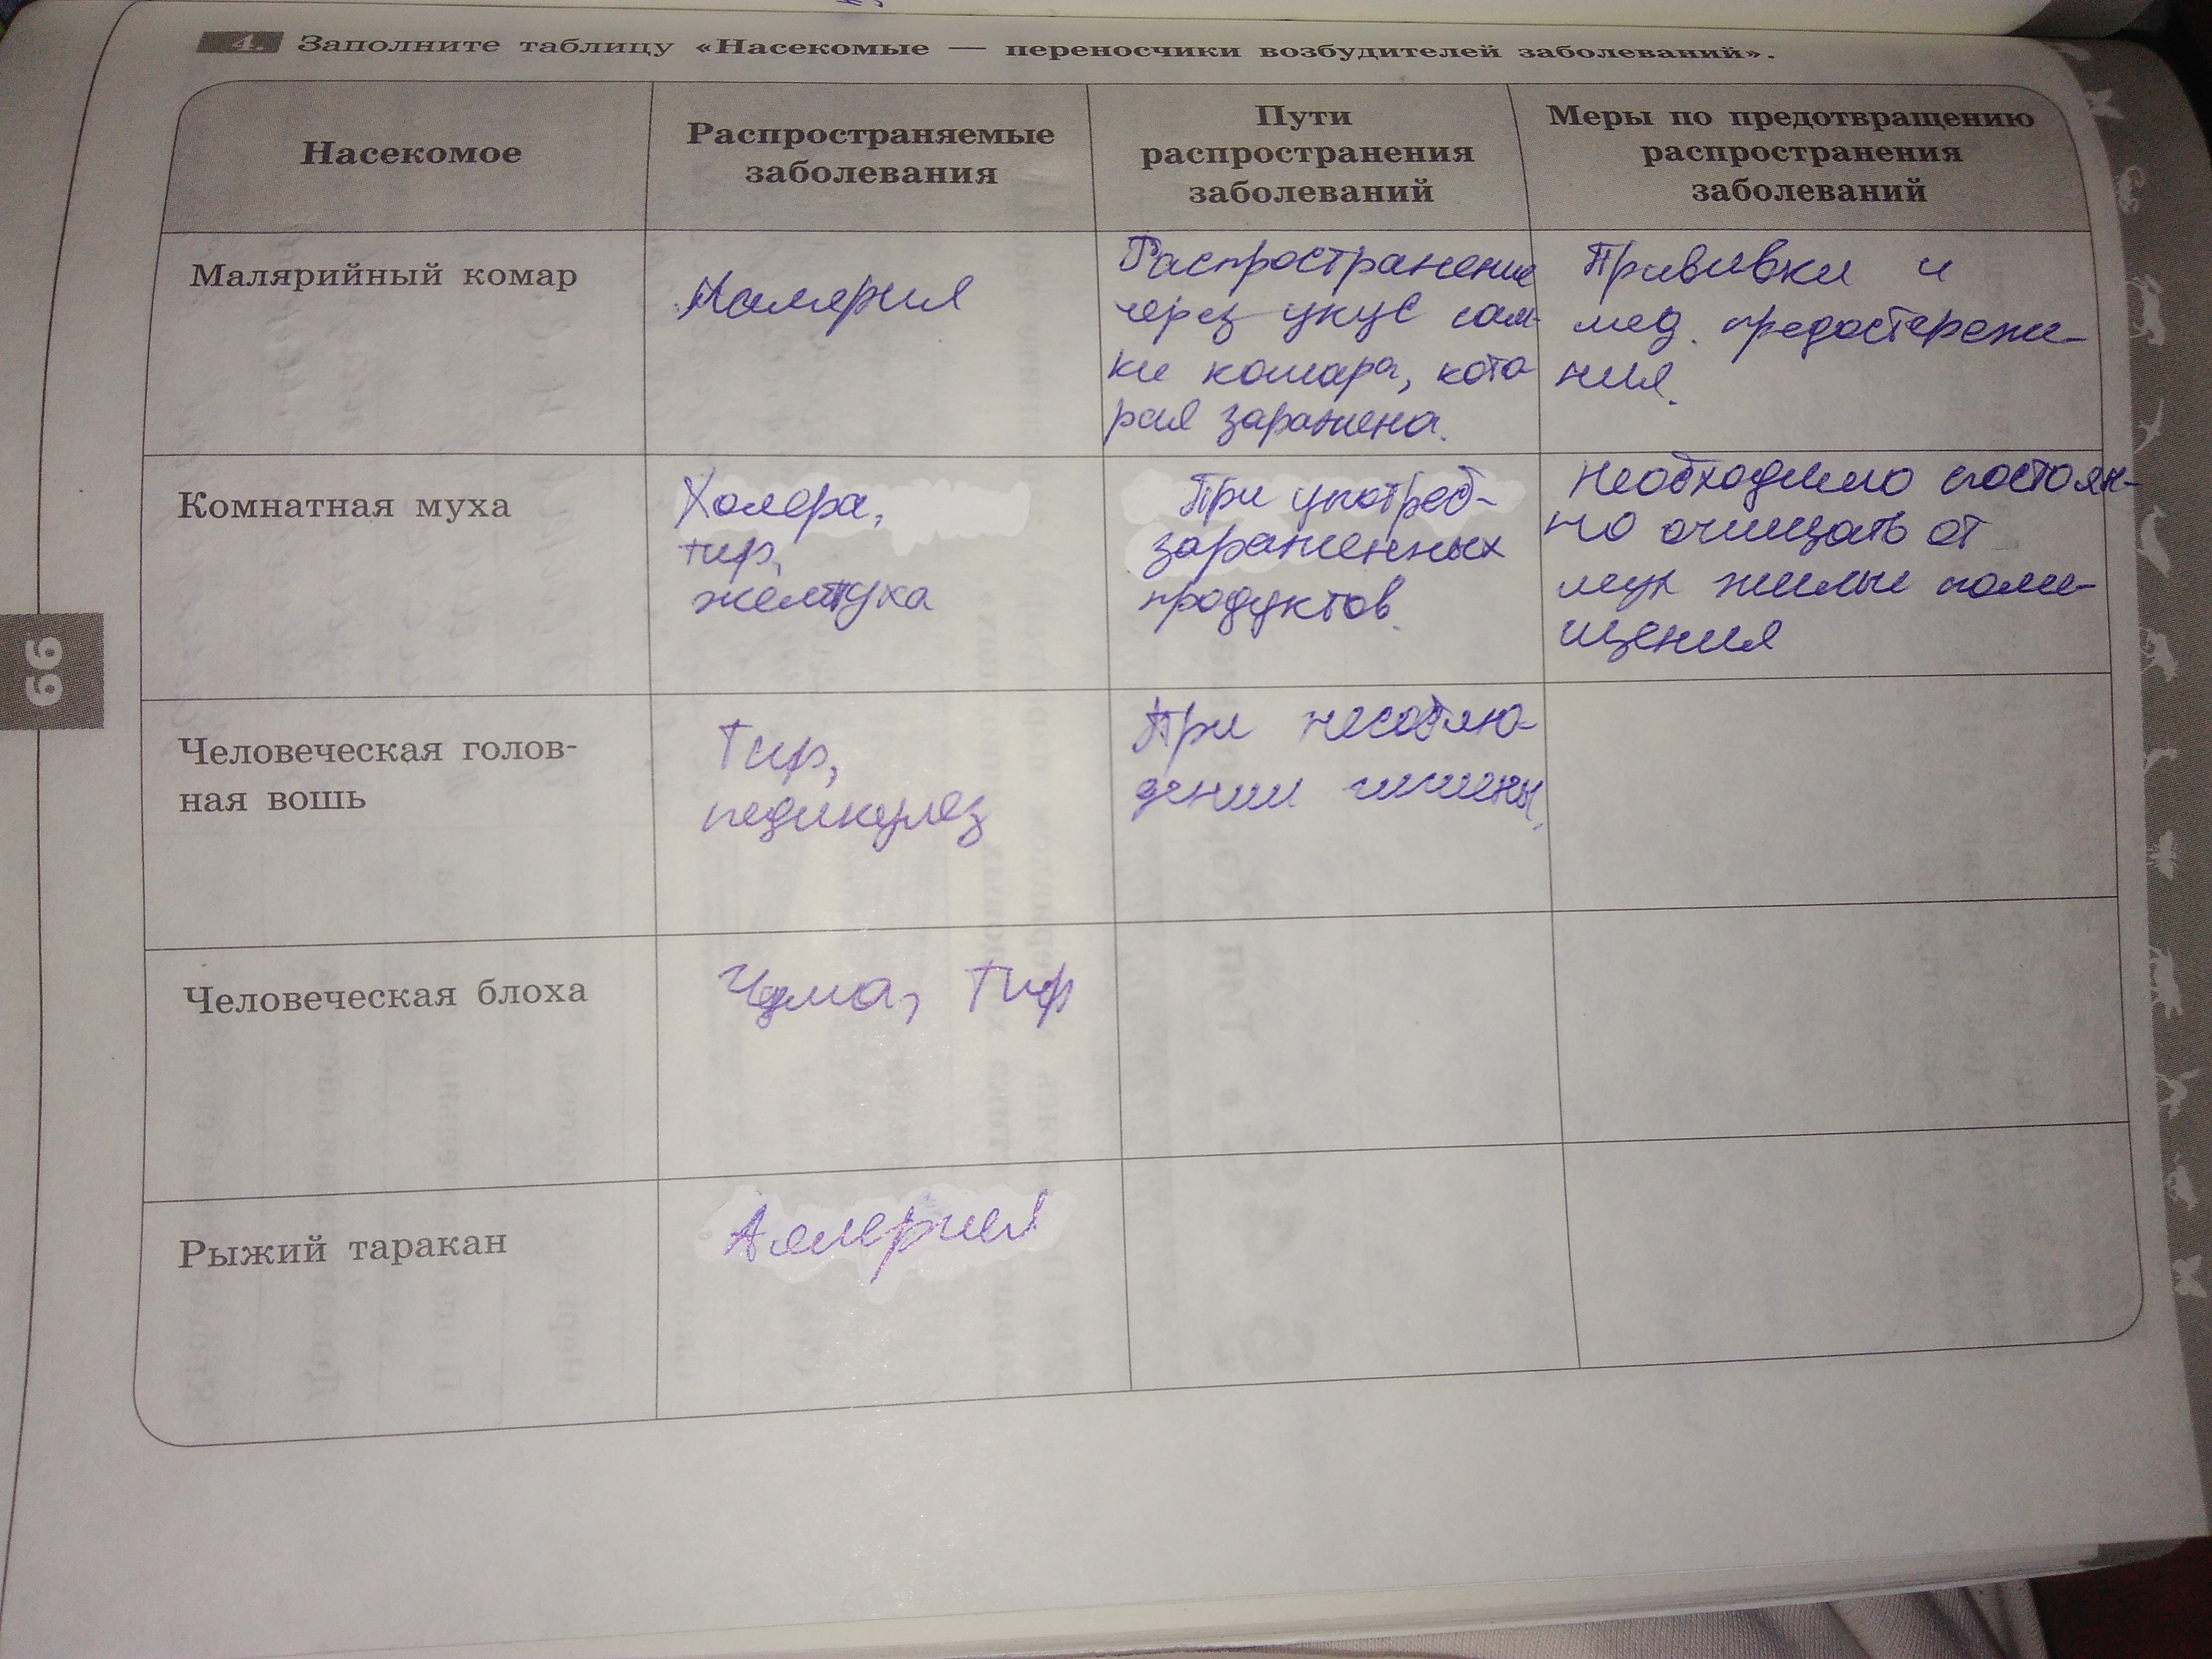 4. Заполните таблицу «Насекомые — переносчики возбудителей заболеваний».
Насекомое
Распространяемые
заболевания
Пути
распространения
заболеваний
Меры по предотвращению
распространения
заболеваний
Малярийный комар
Малярия
Распространение
через укус сам-
ки комара, кото
рая заражена.
Прививки и
мед. предостереже-
ния.
Комнатная муха
Холера,
тиф,
желтуха
При употреб-
зараженных
продуктов.
Необходимо постоян-
но очищать от
мух жилые поме-
щения
Человеческая голов-
ная вошь
Тиф,
педикулез
При несоблю-
дении гигиены.
Человеческая блоха
Чума, Тиф
Рыжий таракан
Аллергия
66